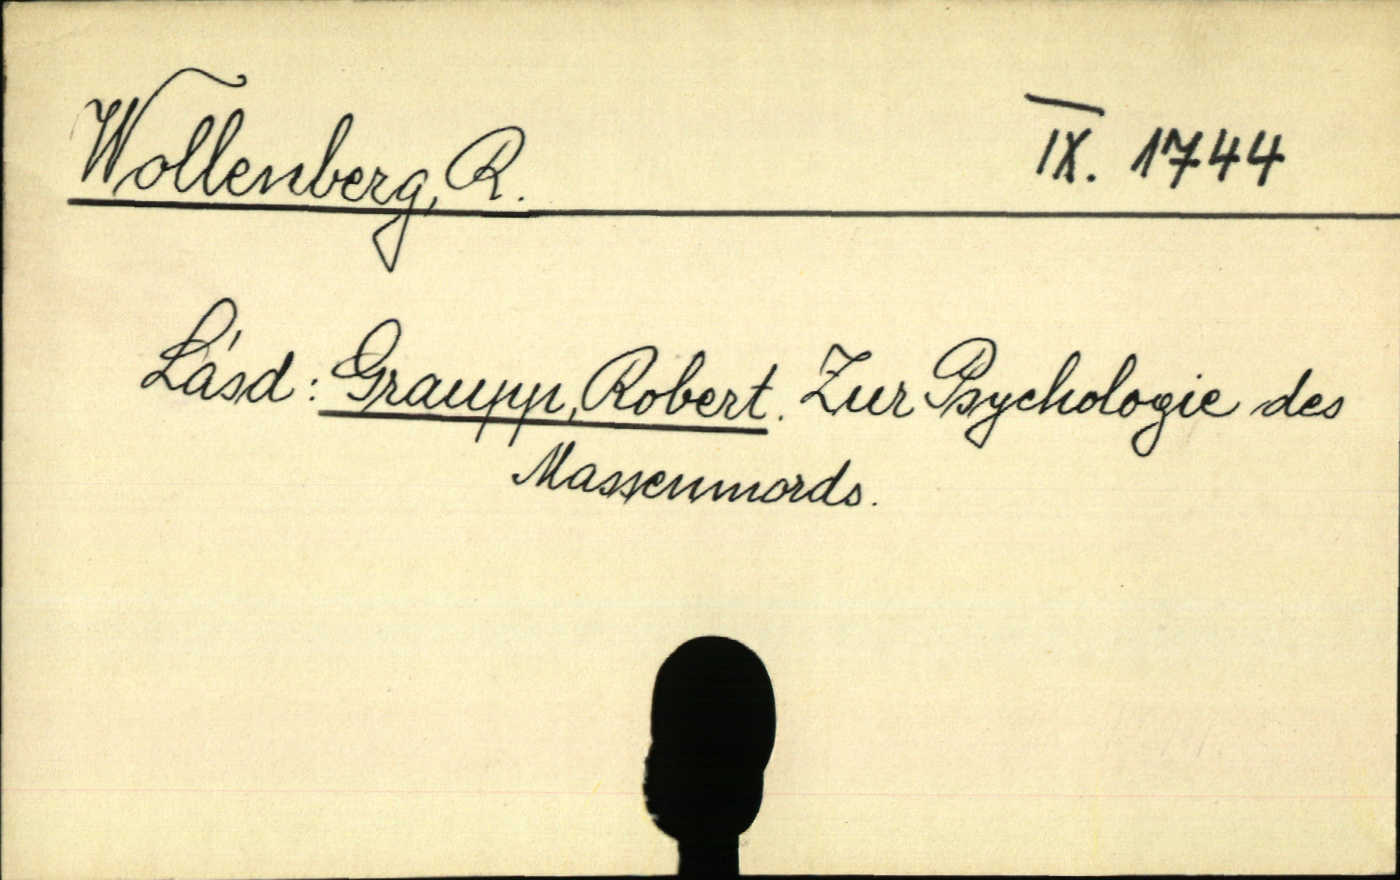 Wollenberg, R. IX. 1744
Lásd: Graupp, Robert. Zur Psychologie des
Massenmords.